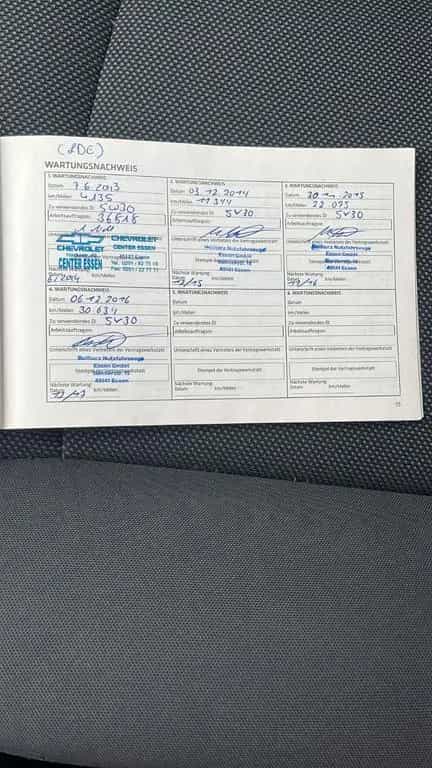 (2DE)
WARTUNGSNACHWEIS
1. WARTUNGSNACHWEIS
Datum 7.6.2013
km/Meilen 4135
Zu verwendendes Öl 5W30
Arbeitsauftragsnr. 36518
CHEVROLET
CHEVROLET
CENTER ESSEN
CENTER ESSEN
45141 Essen
Nächste Wartung
Datum km/Meilen
6/2014
2. WARTUNGSNACHWEIS
Datum 03.12.2014
km/Meilen 11344
Zu verwendendes Öl 5W30
Arbeitsauftragsnr.
Unterschrift eines Vertreters der Vertragswerkstatt
Nutzfahrzeuge
Essen GmbH
45141 Essen
Nächste Wartung
Datum km/Meilen
12/15
3. WARTUNGSNACHWEIS
Datum 30 11 2015
km/Meilen 22 075
Zu verwendendes Öl 5W30
Arbeitsauftragsnr.
Unterschrift eines Vertreters der Vertragswerkstatt
Nutzfahrzeuge
Essen GmbH
45141 Essen
Nächste Wartung
Datum km/Meilen
4. WARTUNGSNACHWEIS
Datum 06.12.2016
km/Meilen 30 634
Zu verwendendes Öl 5W30
Arbeitsauftragsnr.
Unterschrift eines Vertreters der Vertragswerkstatt
Nutzfahrzeuge
Essen GmbH
45141 Essen
Nächste Wartung
Datum km/Meilen
5. WARTUNGSNACHWEIS
Datum
km/Meilen
Zu verwendendes Öl
Arbeitsauftragsnr.
Unterschrift eines Vertreters der Vertragswerkstatt
Stempel der Vertragswerkstatt
Nächste Wartung
Datum km/Meilen
6. WARTUNGSNACHWEIS
Datum
km/Meilen
Zu verwendendes Öl
Arbeitsauftragsnr.
Unterschrift eines Vertreters der Vertragswerkstatt
Stempel der Vertragswerkstatt
Nächste Wartung
Datum km/Meilen